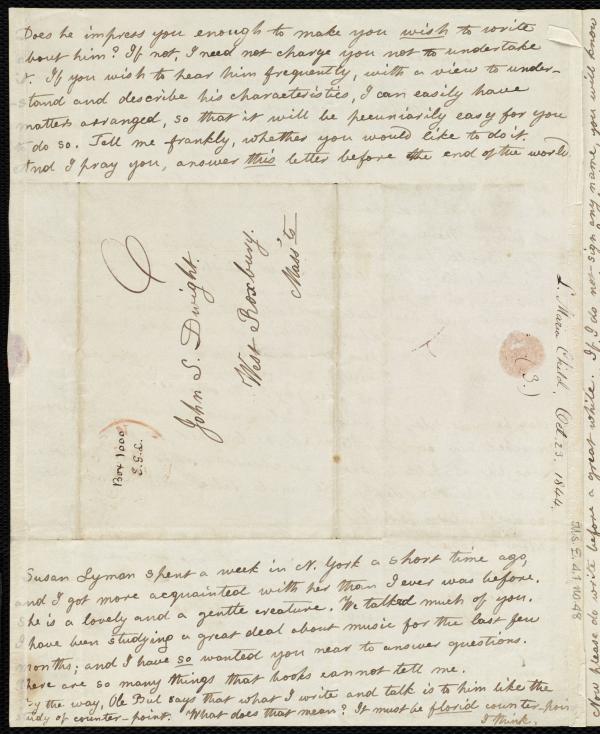 Does he impress you enough to make you wish to write
about him? If not, I need not charge you not to undertake
it. If you wish to hear him frequently, with a view to under-
stand and describe his characteristics, I can easily have
matters arranged, so that it will be pecuniarily easy for you
to do so. Tell me frankly, whether you would like to do it.
And I pray you, answer this letter before the end of the world.
John S. Dwight.
West Roxbury.
Mass'ts
Box 1000
L. Maria Child. Oct. 23. 1844.
(3.)
Susan Lyman spent a week in N. York a short time ago,
and I got more acquainted with her than I ever was before.
She is a lovely and a gentle creature. We talked much of you.
I have been studying a great deal about music for the last few
months; and I have so wanted you near to answer questions.
There are so many things that books cannot tell me.
By the way, Ole Bul says that what I write and talk is to him like the
study of counter-point. What does that mean? It must be florid counter-poin
I think.
Now please do write before a great while. If I do not sign any name, you will know